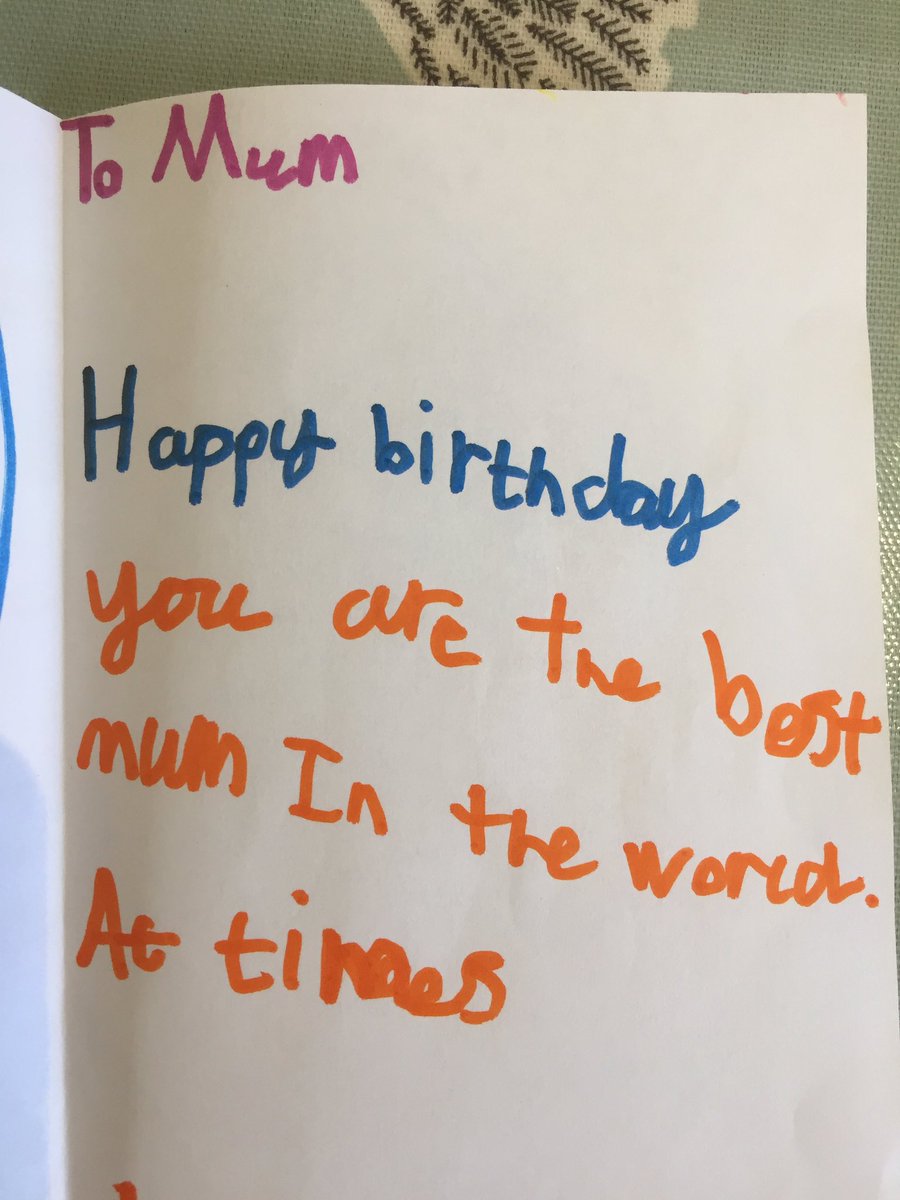 To Mum
Happy birthday
you are the best
mum In the world.
At times